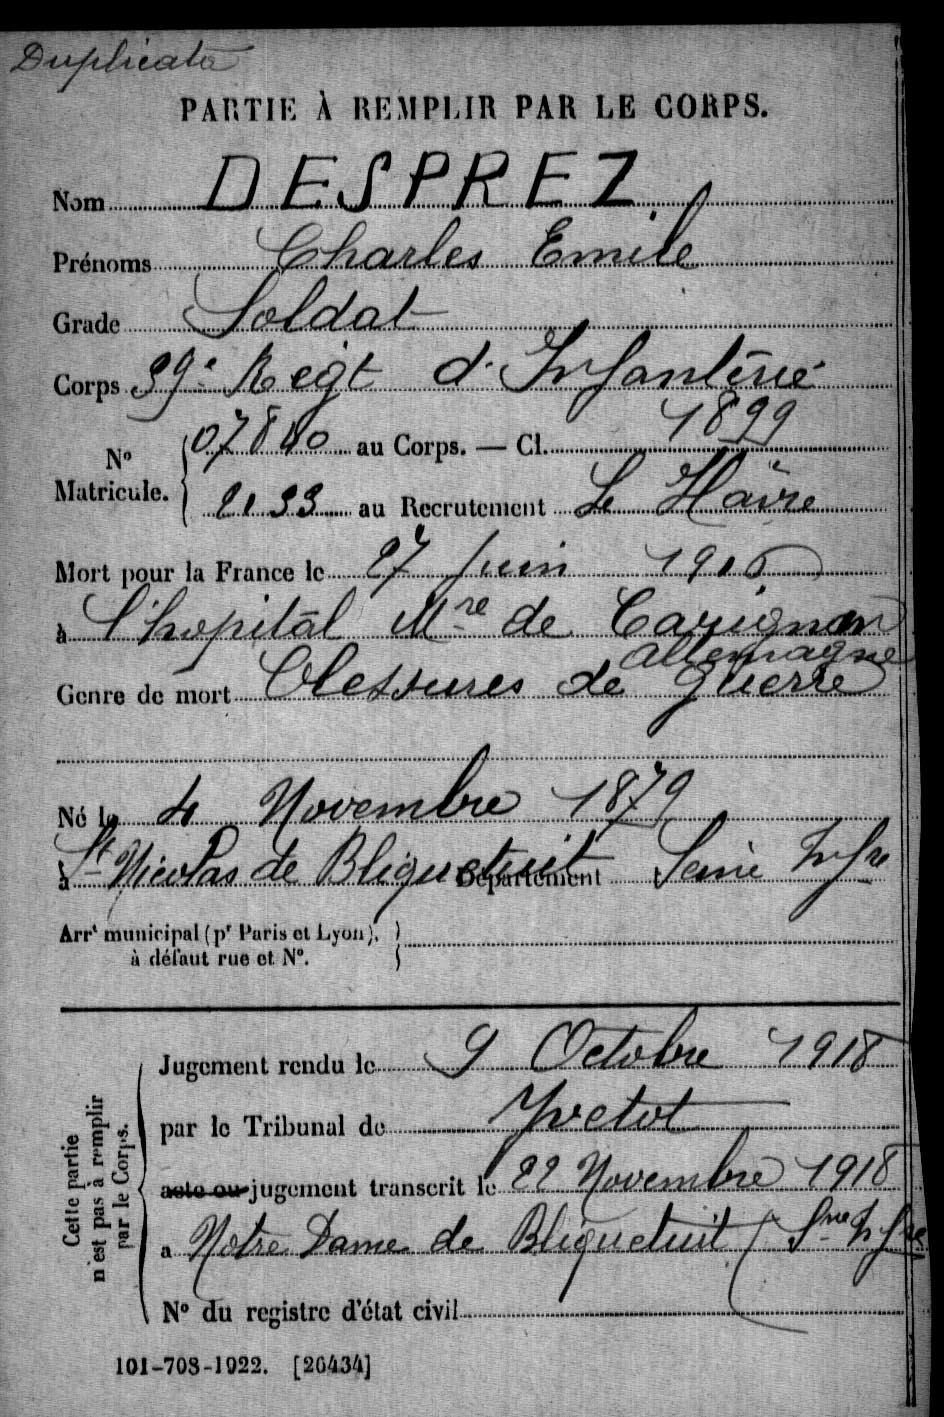 Duplicata
PARTIE À REMPLIR PAR LE CORPS.
Nom DESPREZ
Prénoms Charles Emile
Grade Soldat
Corps 39e Regt d'Infanterie
No Matricule. { 07840 au Corps. — Cl. 1899
2133 au Recrutement Le Hâvre
Mort pour la France le 27 Juin 1916
à l'hopital Mre de Carignan
allemagne
Genre de mort blessures de guerre
Né le 4 Novembre 1879
à St Nicolas de Bliquetuit Département Seine Infre
Arrt municipal (pr Paris et Lyon), }
à défaut rue et No.
Cette partie n'est pas à remplir par le Corps.
Jugement rendu le 9 Octobre 1918
par le Tribunal de Yvetot
acte ou jugement transcrit le 22 Novembre 1918
à Notre Dame de Bliquetuit (Sne Infre
No du registre d'état civil
101-708-1922. [26434]